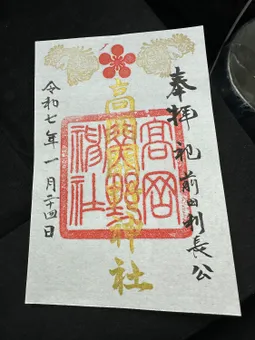 奉拝 祀 前田利長公
高岡関野神社
高岡
関野
神社
令和七年一月二十四日